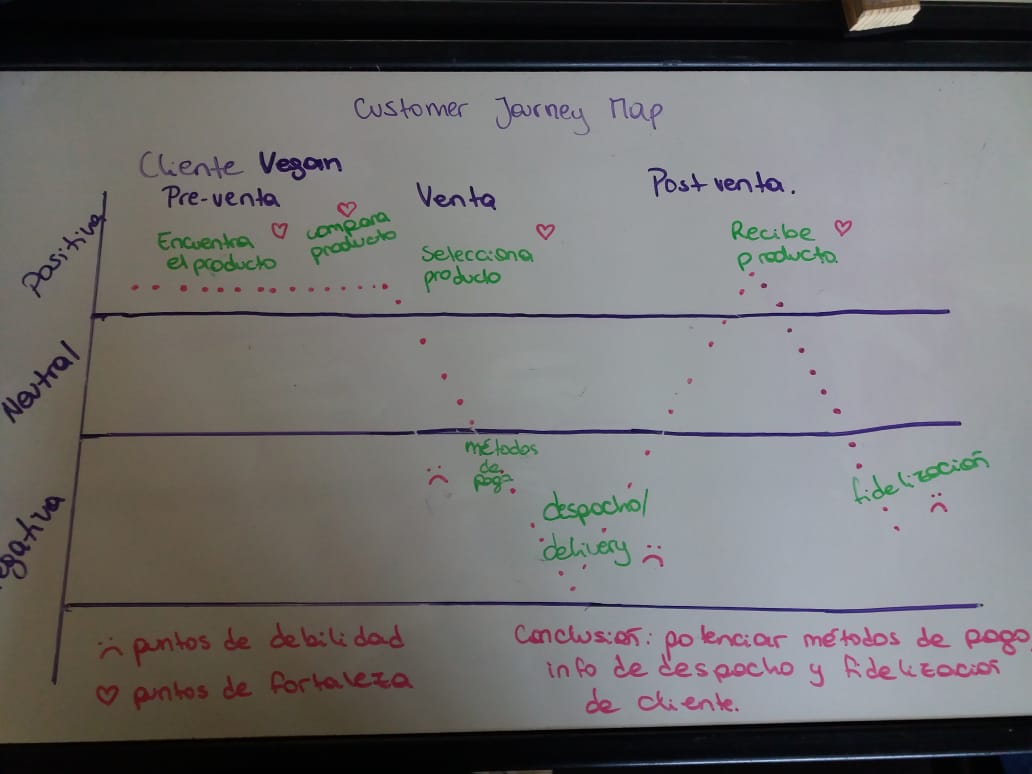 Customer Journey Map
Cliente Vegan
Pre-venta
Venta
Postventa.
Positiva
Encuentra
el producto
compara
producto
Selecciona
producto
Recibe
producto.
Neutral
egativa
métodos
de
pago
despacho/
delivery
fidelización
puntos de debilidad
puntos de fortaleza
Conclusión: potenciar métodos de pago
info de despacho y fidelización
de cliente.